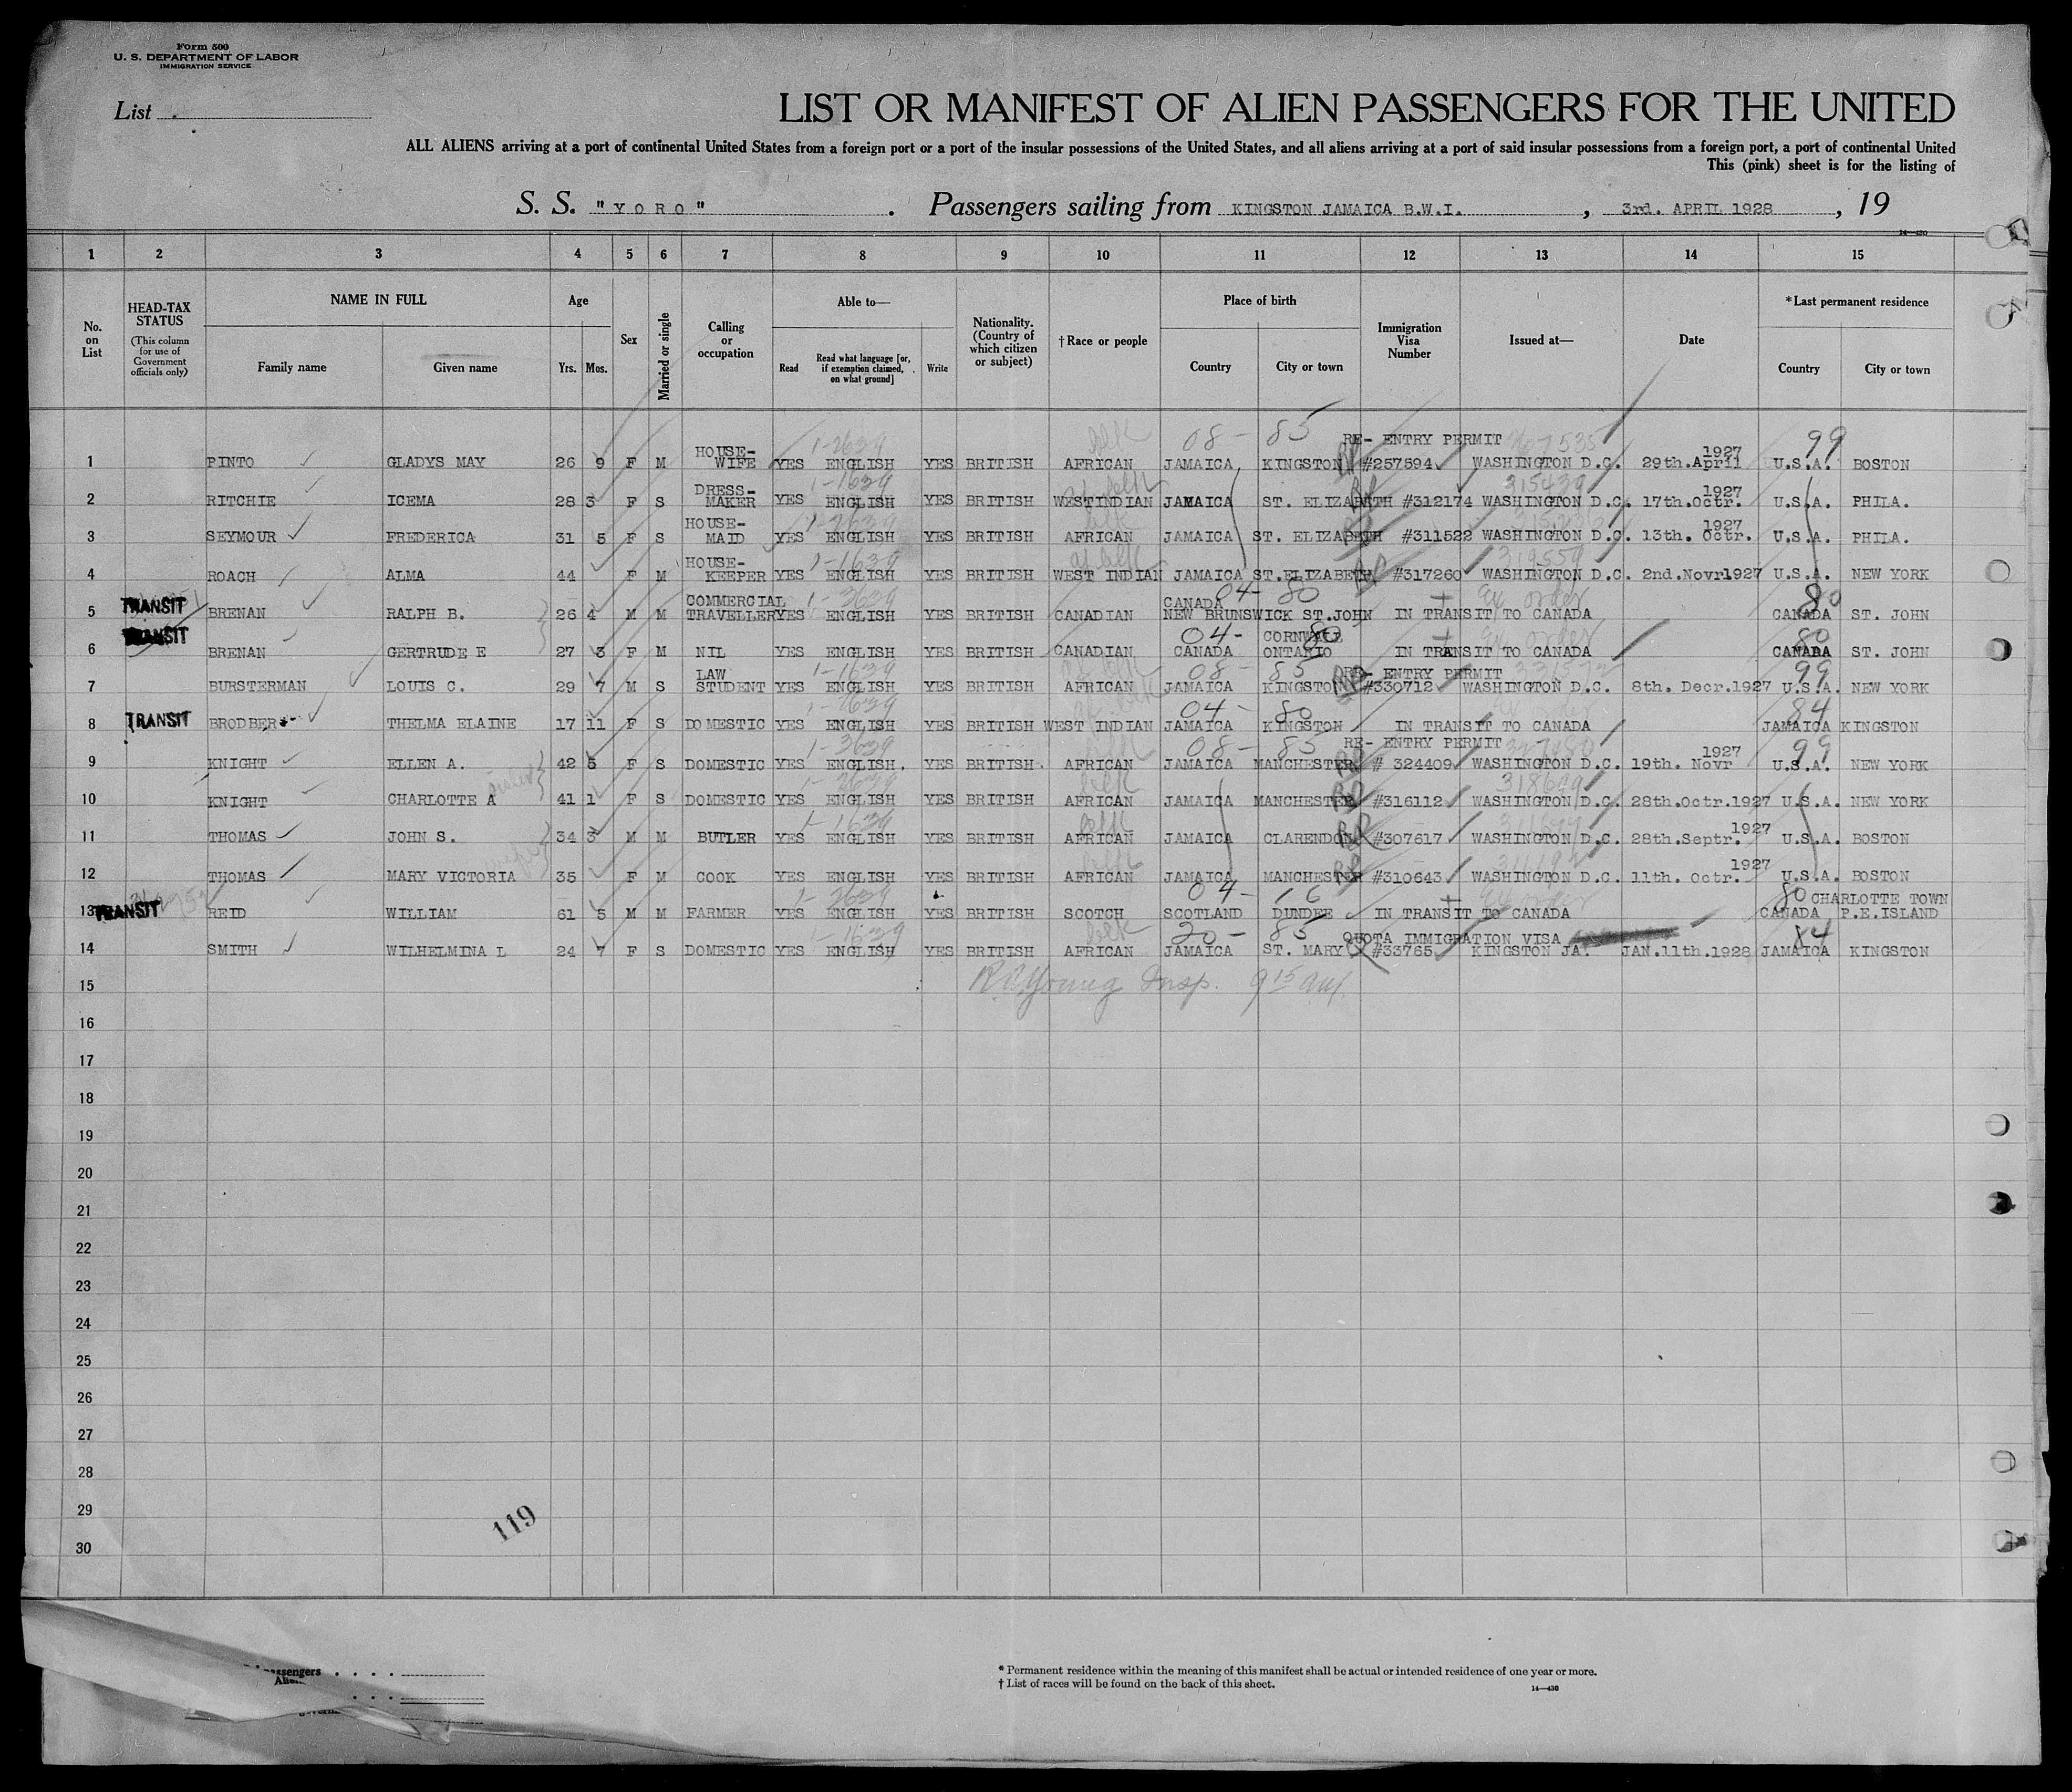 Form 500
U. S. DEPARTMENT OF LABOR
IMMIGRATION SERVICE
List
LIST OR MANIFEST OF ALIEN PASSENGERS FOR THE UNITED
ALL ALIENS arriving at a port of continental United States from a foreign port or a port of the insular possessions of the United States, and all aliens arriving at a port of said insular possessions from a foreign port, a port of continental United
This (pink) sheet is for the listing of
S. S. "YORO" . Passengers sailing from KINGSTON JAMAICA B.W.I. , 3rd. APRIL 1928 , 19
14—430
1 2 3 4 5 6 7 8 9 10 11 12 13 14 15
No. on List
HEAD-TAX STATUS (This column for use of Government officials only)
NAME IN FULL
Family name Given name
Age
Yrs. Mos.
Sex
Married or single
Calling or occupation
Able to—
Read Read what language [or, if exemption claimed, on what ground] Write
Nationality. (Country of which citizen or subject)
†Race or people
Place of birth
Country City or town
Immigration Visa Number
Issued at—
Date
*Last permanent residence
Country City or town
08- 85 RE- ENTRY PERMIT 99
1 PINTO GLADYS MAY 26 9 F M HOUSE-WIFE YES ENGLISH YES BRITISH AFRICAN JAMAICA KINGSTON #257594 WASHINGTON D.C. 29th.April 1927 U.S.A. BOSTON
2 RITCHIE ICEMA 28 3 F S DRESS-MAKER YES ENGLISH YES BRITISH WESTINDIAN JAMAICA ST. ELIZABETH #312174 WASHINGTON D.C. 17th.Octr. 1927 U.S.A. PHILA.
3 SEYMOUR FREDERICA 31 5 F S HOUSE-MAID YES ENGLISH YES BRITISH AFRICAN JAMAICA ST. ELIZABETH #311522 WASHINGTON D.C. 13th. Octr. 1927 U.S.A. PHILA.
4 ROACH ALMA 44 F M HOUSE-KEEPER YES ENGLISH YES BRITISH WEST INDIAN JAMAICA ST.ELIZABETH #317260 WASHINGTON D.C. 2nd.Novr1927 U.S.A. NEW YORK
04- 80 80
5 TRANSIT BRENAN RALPH B. 26 4 M M COMMERCIAL TRAVELLER YES ENGLISH YES BRITISH CANADIAN CANADA NEW BRUNSWICK ST.JOHN IN TRANSIT TO CANADA CANADA ST. JOHN
04- 80 80
6 TRANSIT BRENAN GERTRUDE E 27 3 F M NIL YES ENGLISH YES BRITISH CANADIAN CANADA CORNWALL ONTARIO IN TRANSIT TO CANADA CANADA ST. JOHN
08- 85 RE- ENTRY PERMIT 99
7 BURSTERMAN LOUIS C. 29 7 M S LAW STUDENT YES ENGLISH YES BRITISH AFRICAN JAMAICA KINGSTON #330712 WASHINGTON D.C. 8th. Decr.1927 U.S.A. NEW YORK
04- 80 84
8 TRANSIT BRODBER THELMA ELAINE 17 11 F S DOMESTIC YES ENGLISH YES BRITISH WEST INDIAN JAMAICA KINGSTON IN TRANSIT TO CANADA JAMAICA KINGSTON
08- 85 RE- ENTRY PERMIT 99
9 KNIGHT ELLEN A. 42 5 F S DOMESTIC YES ENGLISH. YES BRITISH. AFRICAN JAMAICA MANCHESTER # 324409 WASHINGTON D.C. 19th. Novr 1927 U.S.A. NEW YORK
10 KNIGHT CHARLOTTE A 41 1 F S DOMESTIC YES ENGLISH YES BRITISH AFRICAN JAMAICA MANCHESTER #316112 WASHINGTON D.C. 28th.Octr.1927 U.S.A. NEW YORK
11 THOMAS JOHN S. 34 3 M M BUTLER YES ENGLISH YES BRITISH AFRICAN JAMAICA CLARENDON #307617 WASHINGTON D.C. 28th.Septr. 1927 U.S.A. BOSTON
12 THOMAS MARY VICTORIA 35 F M COOK YES ENGLISH YES BRITISH AFRICAN JAMAICA MANCHESTER #310643 WASHINGTON D.C. 11th. Octr. 1927 U.S.A. BOSTON
04- 16 80
13 TRANSIT REID WILLIAM 61 5 M M FARMER YES ENGLISH YES BRITISH SCOTCH SCOTLAND DUNDEE IN TRANSIT TO CANADA CANADA CHARLOTTE TOWN P.E.ISLAND
20- 85 QUOTA IMMIGRATION VISA 84
14 SMITH WILHELMINA L 24 7 F S DOMESTIC YES ENGLISH YES BRITISH AFRICAN JAMAICA ST. MARY #33765 KINGSTON JA. JAN.11th.1928 JAMAICA KINGSTON
15 Young Insp. 9 15 am.
16
17
18
19
20
21
22
23
24
25
26
27
28
29
30
119
* Permanent residence within the meaning of this manifest shall be actual or intended residence of one year or more.
† List of races will be found on the back of this sheet.
14—430